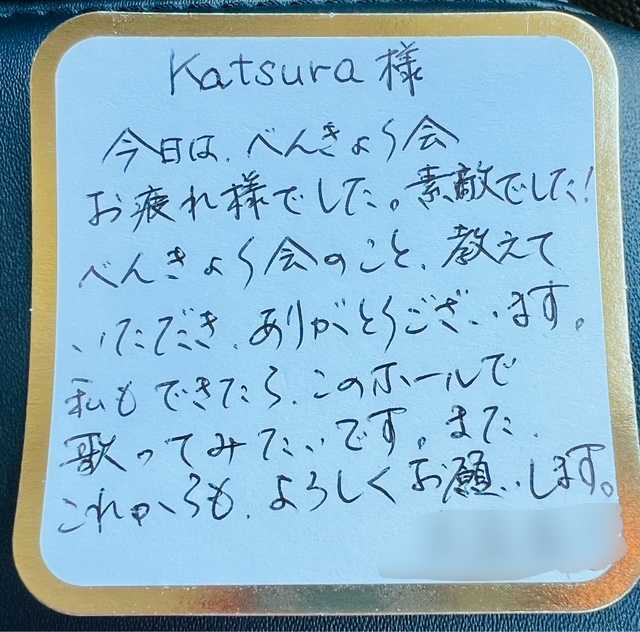 Katsura 様
今日は、べんきょう会
お疲れ様でした。素敵でした!
べんきょう会のこと、教えて
いただき、ありがとうございます。
私もできたら、このホールで
歌ってみたいです。また、
これからも、よろしくお願いします。